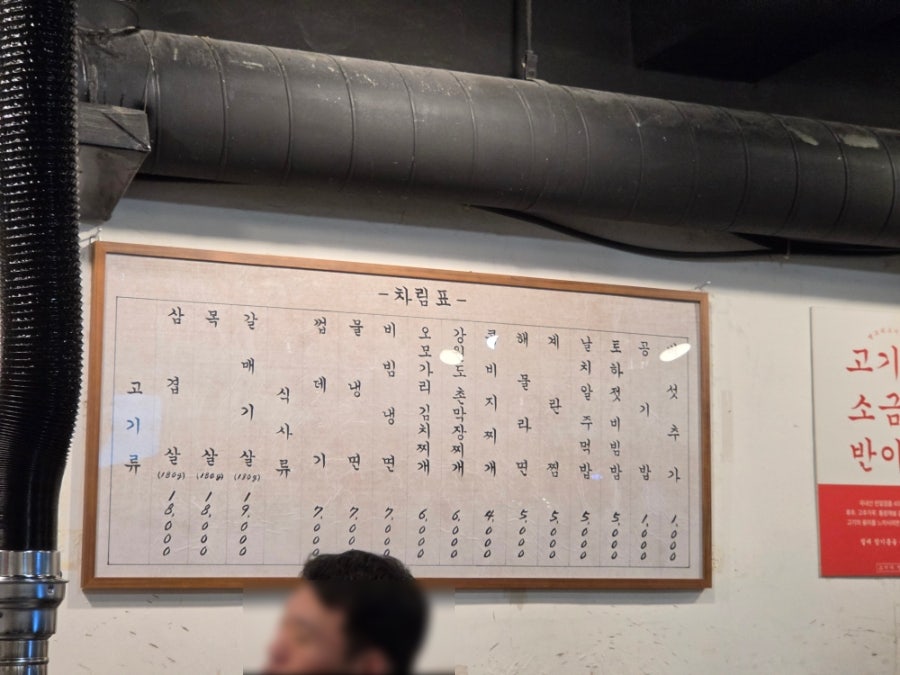 -차림표-
고기류
삼겹살 (180g) 18,000
목살 (180g) 18,000
갈매기살 (180g) 19,000
식사류
껍데기 7,000
물냉면 7,000
비빔냉면 7,000
오모가리김치찌개 6,000
강원도촌막장찌개 6,000
콩비지찌개 4,000
해물라면 5,000
계란찜 5,000
날치알주먹밥 5,000
토하젓비빔밥 5,000
공기밥 1,000
섯추가 1,000
고기
소금
반이